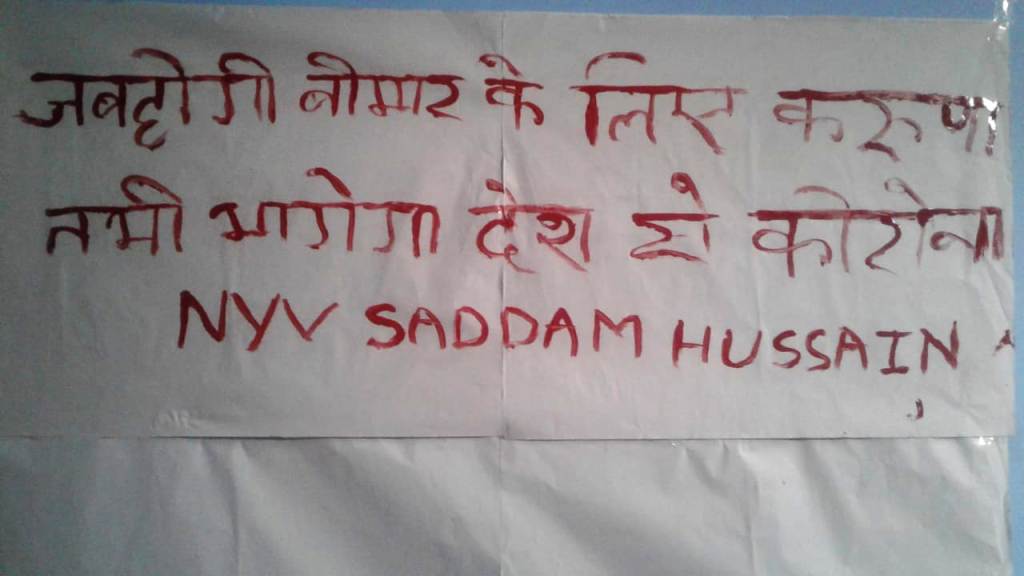 जब होगी बीमार के लिए करुणा
तभी भागेगा देश से कोरोना
NYV SADDAM HUSSAIN